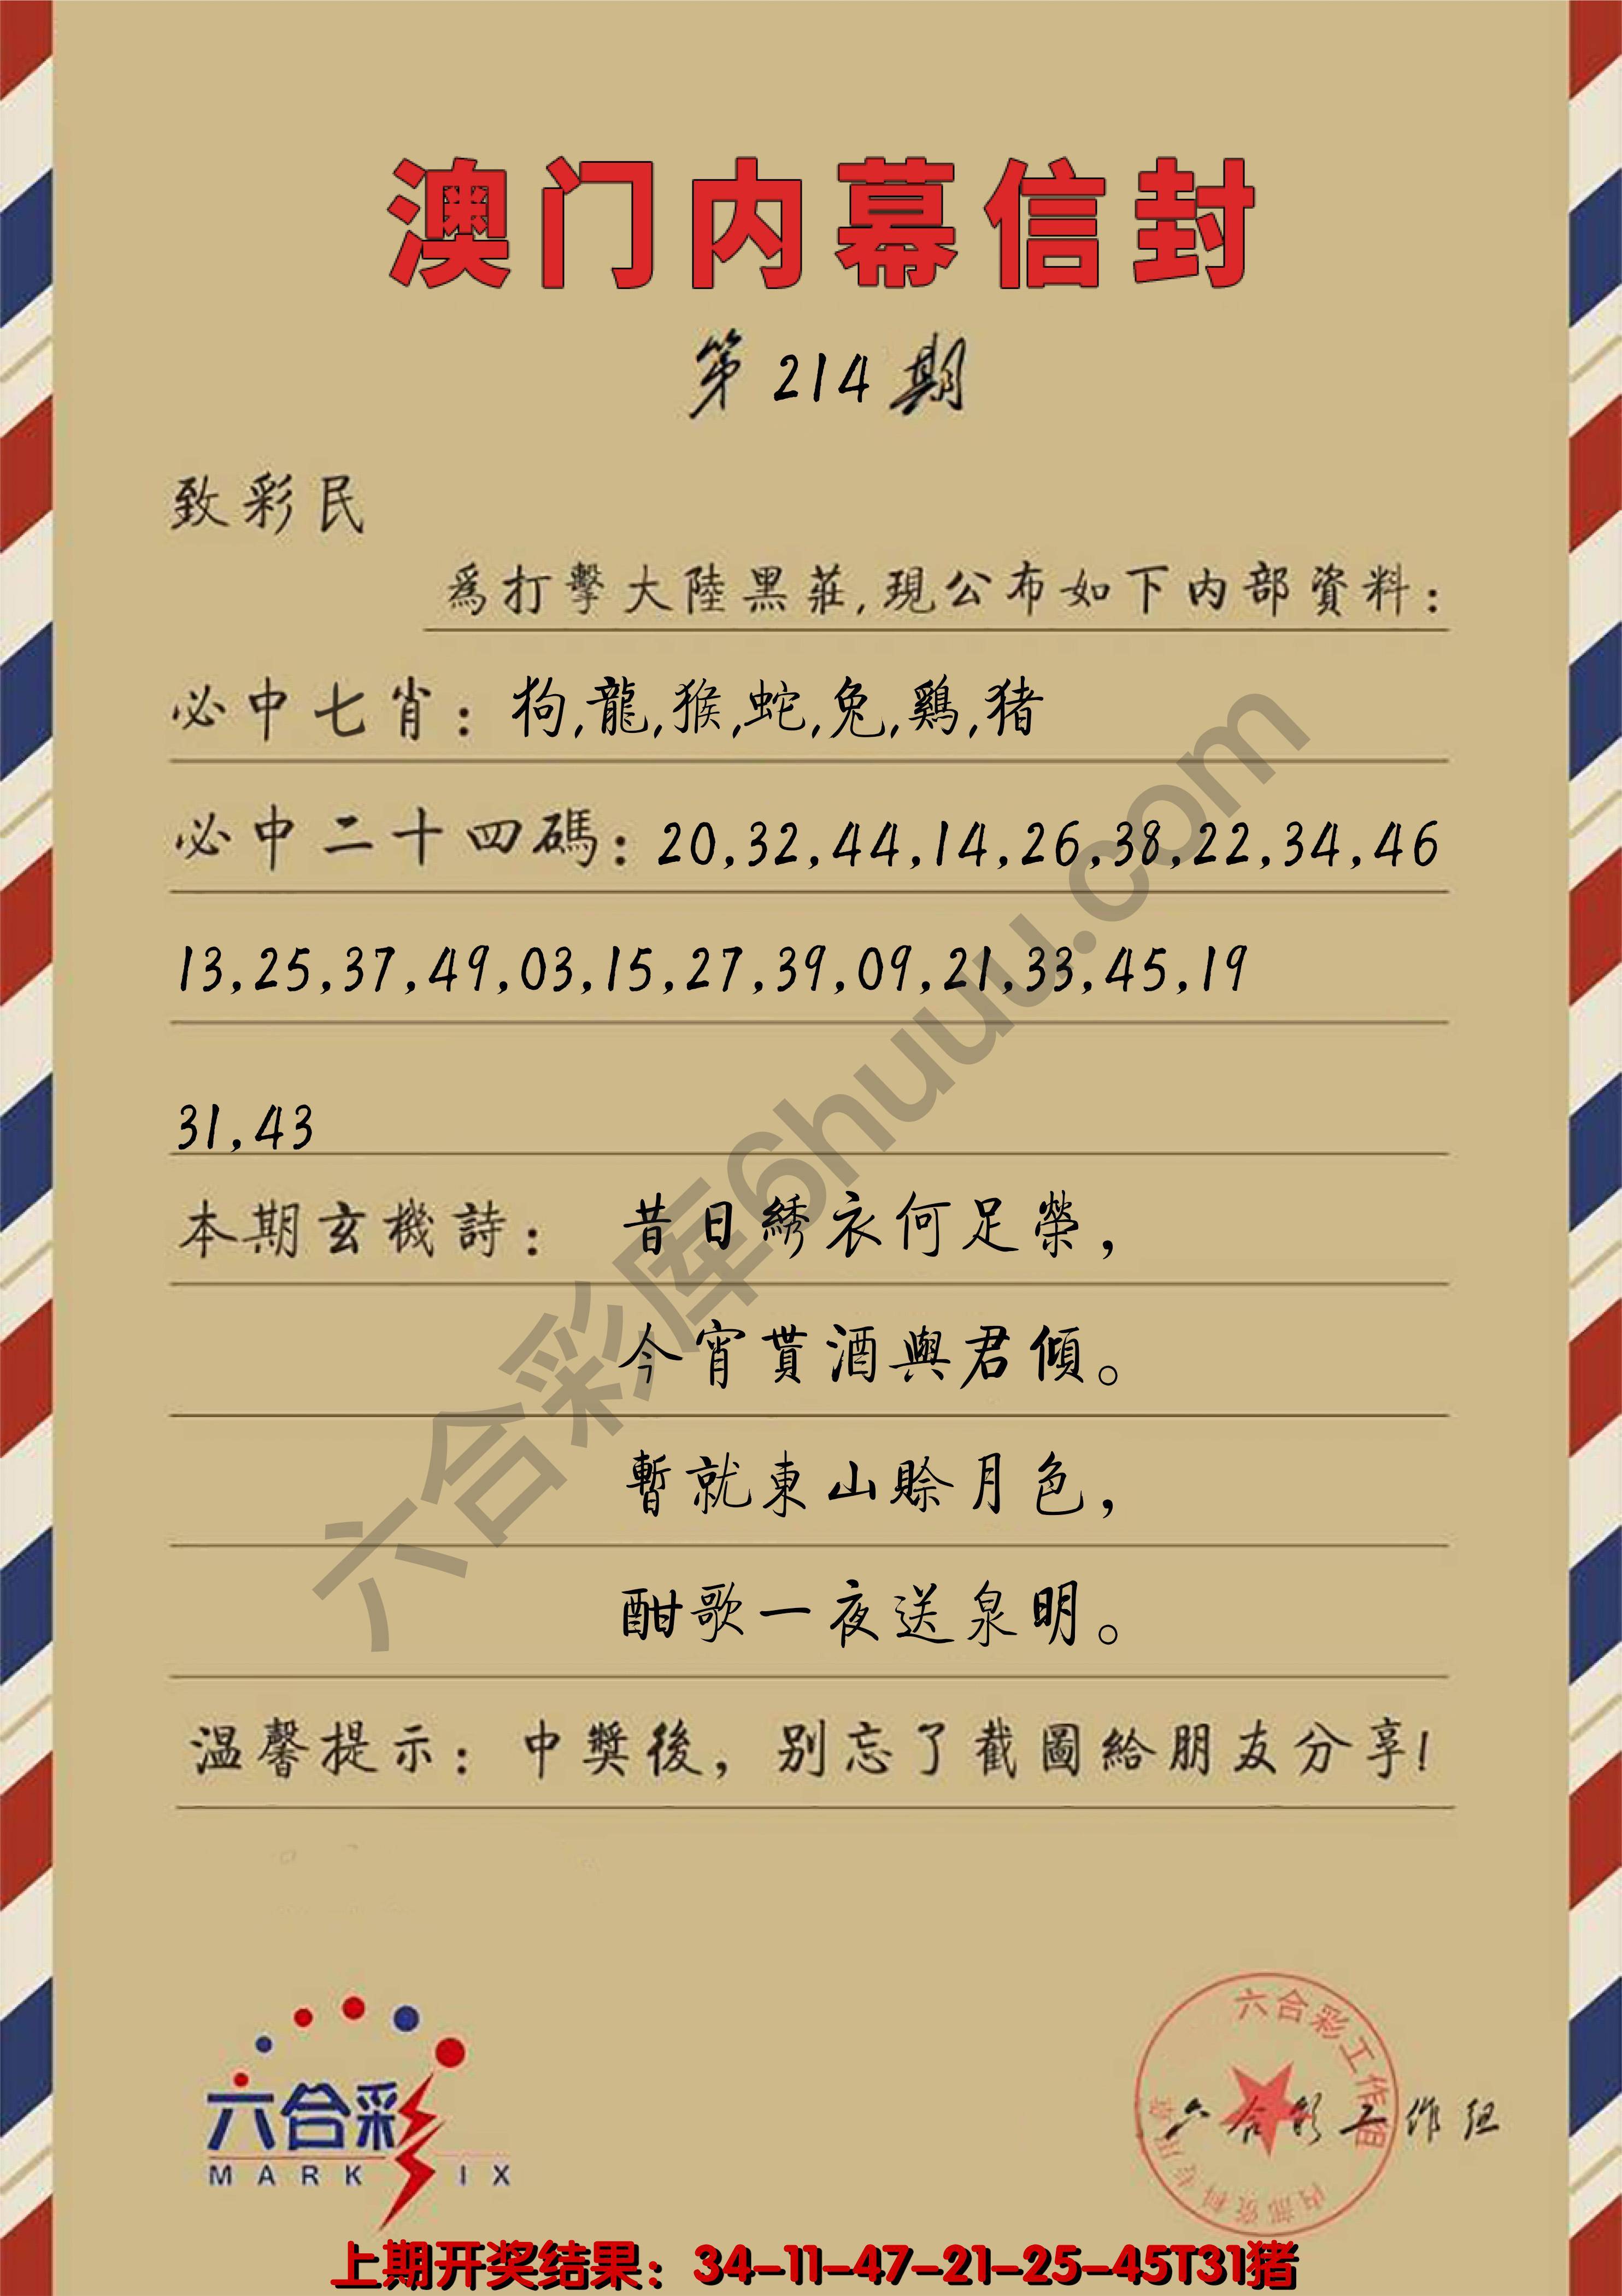 澳门内幕信封
第214期
致彩民
爲打擊大陸黑莊,現公布如下内部資料:
必中七肖: 狗,龍,猴,蛇,兔,鷄,猪
必中二十四碼: 20,32,44,14,26,38,22,34,46
13,25,37,49,03,15,27,39,09,21,33,45,19
31,43
本期玄機詩: 昔日綉衣何足榮,
今宵貰酒與君傾。
暫就東山賒月色,
酣歌一夜送泉明。
温馨提示: 中獎後, 别忘了截圖給朋友分享!
六合彩库6huuu.com
六合彩
MARK IX
六合彩工作组
内部资料专用章
六合彩工作组
上期开奖结果: 34-11-47-21-25-45T31猪